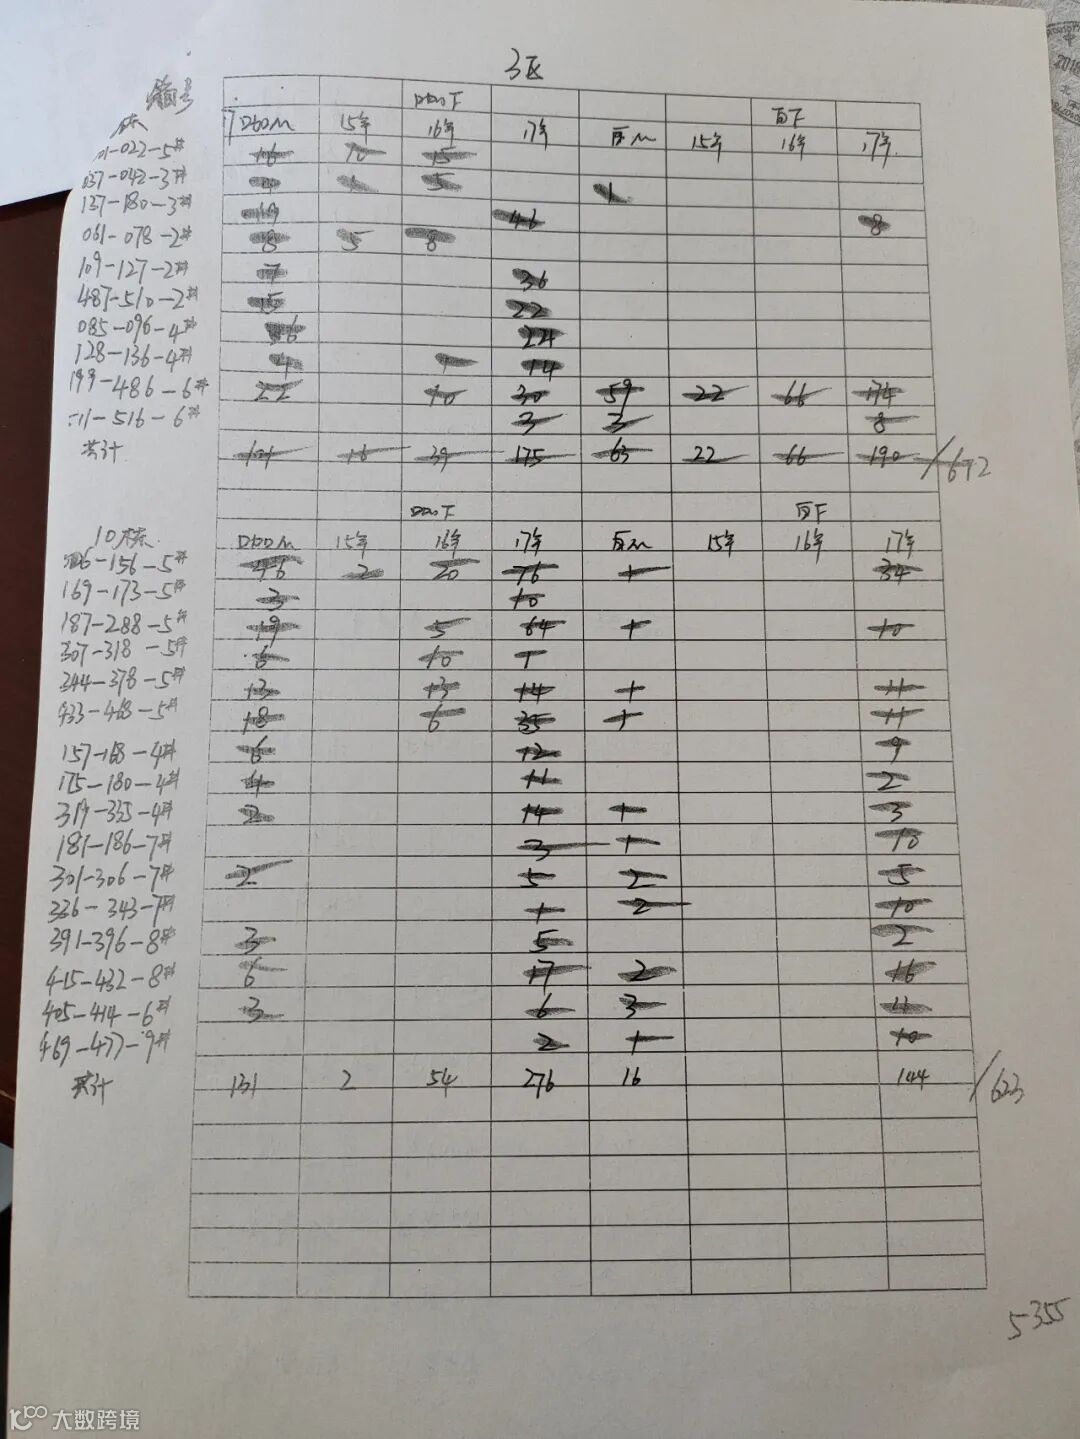 3区
编号
DDO下 百下
DDO从 15年 16年 17年 百从 15年 16年 17年
01-022-5# 16 10 15
037-042-3# 5 1
137-180-3# 19 46 8
061-078-2# 8 5 8
109-127-2# 7 36
487-510-2# 15 22
085-096-4# 24
128-136-4# 4 1 14
199-486-6# 22 10 30 59 22 66 174
511-516-6# 3 3 8
共计 101 16 39 175 63 22 66 190 /672
DDO下 百下
10栋 DDO从 15年 16年 17年 百从 15年 16年 17年
-156-5# 46 2 20 76 1 34
169-173-5# 3 10
187-288-5# 19 5 64 1 10
307-318-5# 6 10 1
344-378-5# 13 13 14 1 11
433-468-5# 18 6 35 1 11
157-168-4# 6 12 9
175-180-4# 4 11 2
319-335-4# 2 14 1 3
181-186-7# 3 1 10
301-306-7# 2 5 2 5
336-343-7# 1 2 10
391-396-8# 3 5 2
415-432-8# 6 17 2 16
405-414-6# 3 6 3 11
469-477-9# 2 1 10
共计 131 2 54 276 16 144 /623
5355
大数跨境